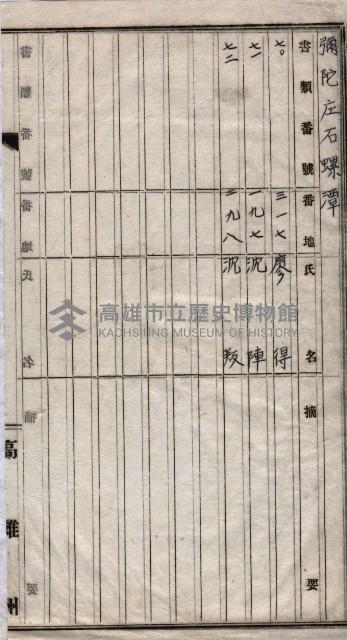 彌陀庄石螺潭
書類番號 番地 氏名 摘要
七〇 三一七 廖得
七一 一九七 沈陣
七二 二九八 沈叛
高雄州
高雄市立歷史博物館
KAOHSIUNG MUSEUM OF HISTORY